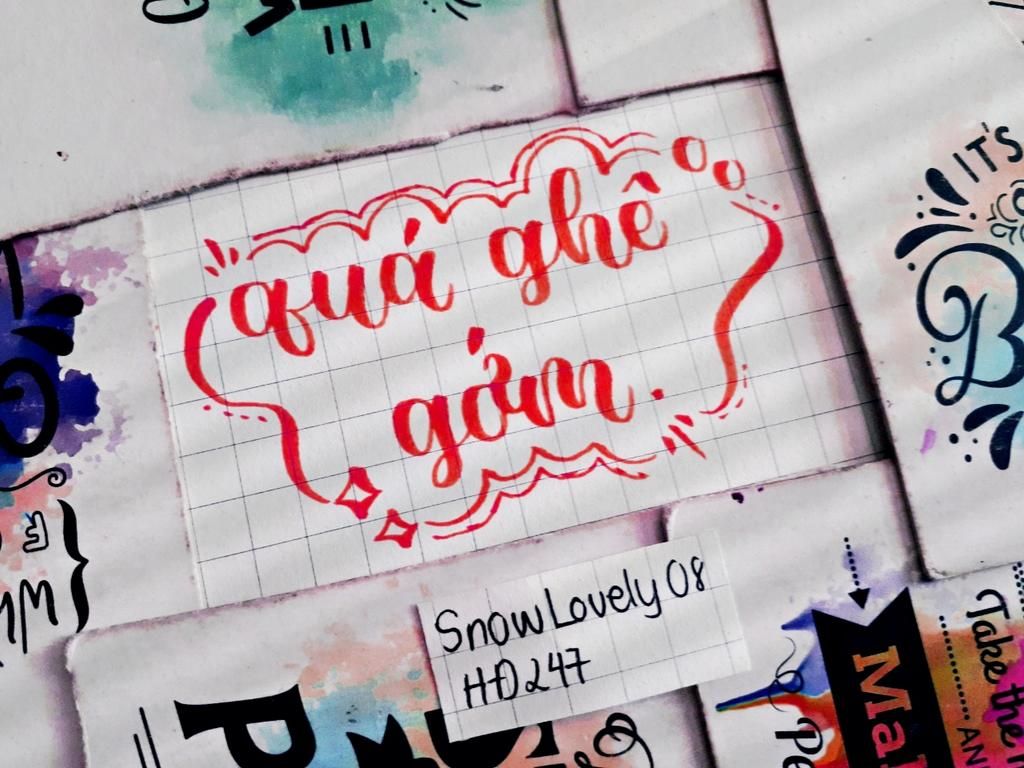 quá ghê
gớm.
SnowLovely08
HĐ247
IT'S
B
Take the
AN
Mal
Pe